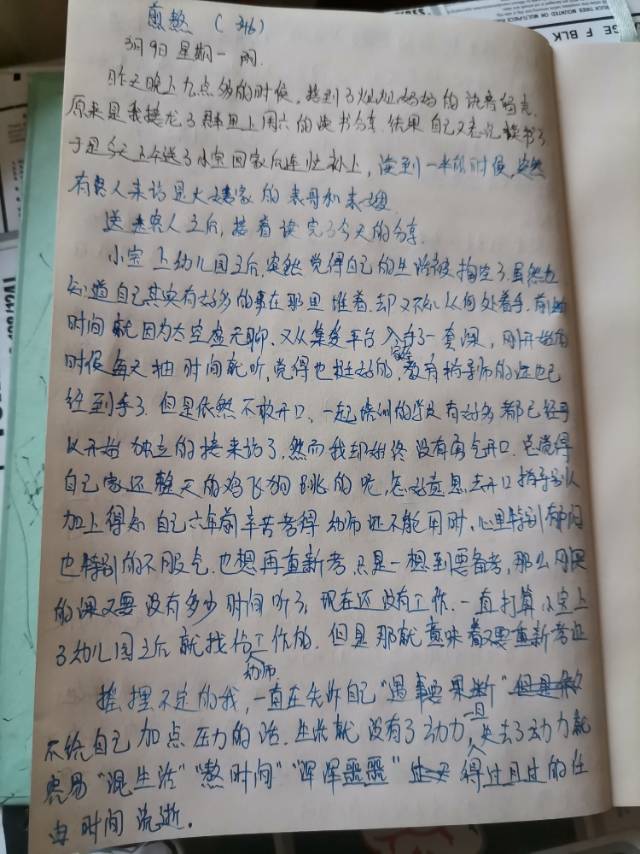 煎熬（316）
3月9日 星期一 雨.
昨天晚上九点多的时候，接到了 妈妈的语音
原来是我接龙了群里上周六的读书分享 结果自己又忘记读书了
于是今天上午送了小宝回家后连忙补上，读到一半的时候，突然
有客人来访是大 家的表哥和表嫂
送走客人之后，接着读完了今天的分享.
小宝上幼儿园之后，突然觉得自己的生活被掏空了.虽然也
知道自己其实有好多的事在那里堆着.却又不知从何处着手.前
时间就因为太空虚无聊.又从 平台入手了一套课，刚开始的
时候每天抽时间就听，觉得也挺好的，教育指导师的证也已
经到手了.但是依然不敢开口、一起培训的学员有好多都已经可
以开始独立的接来访了，然而我却始终没有勇气开口.总觉得
自己家还整天的鸡飞狗跳的呢，怎好意思去开口指导别人
加上得知自己六年前辛苦考得幼师证不能用时，心里特别郁闷
也特别的不服气.也想再重新考.只是一想到要备考，那么网课
的课又要没有多少时间听了，现在还没有工作.一直打算小宝上
了幼儿园之后就找份幼师工作的.但是那就意味着又要重新考证
摇摆不定的我，一直在告诉自己“遇事要果断”
不给自己加点压力的话.生活就没有了动力，一旦失去了动力就
容易“混生活”“熬时间”“浑浑噩噩” 得过且过的任
由时间流逝.
SE F BLK